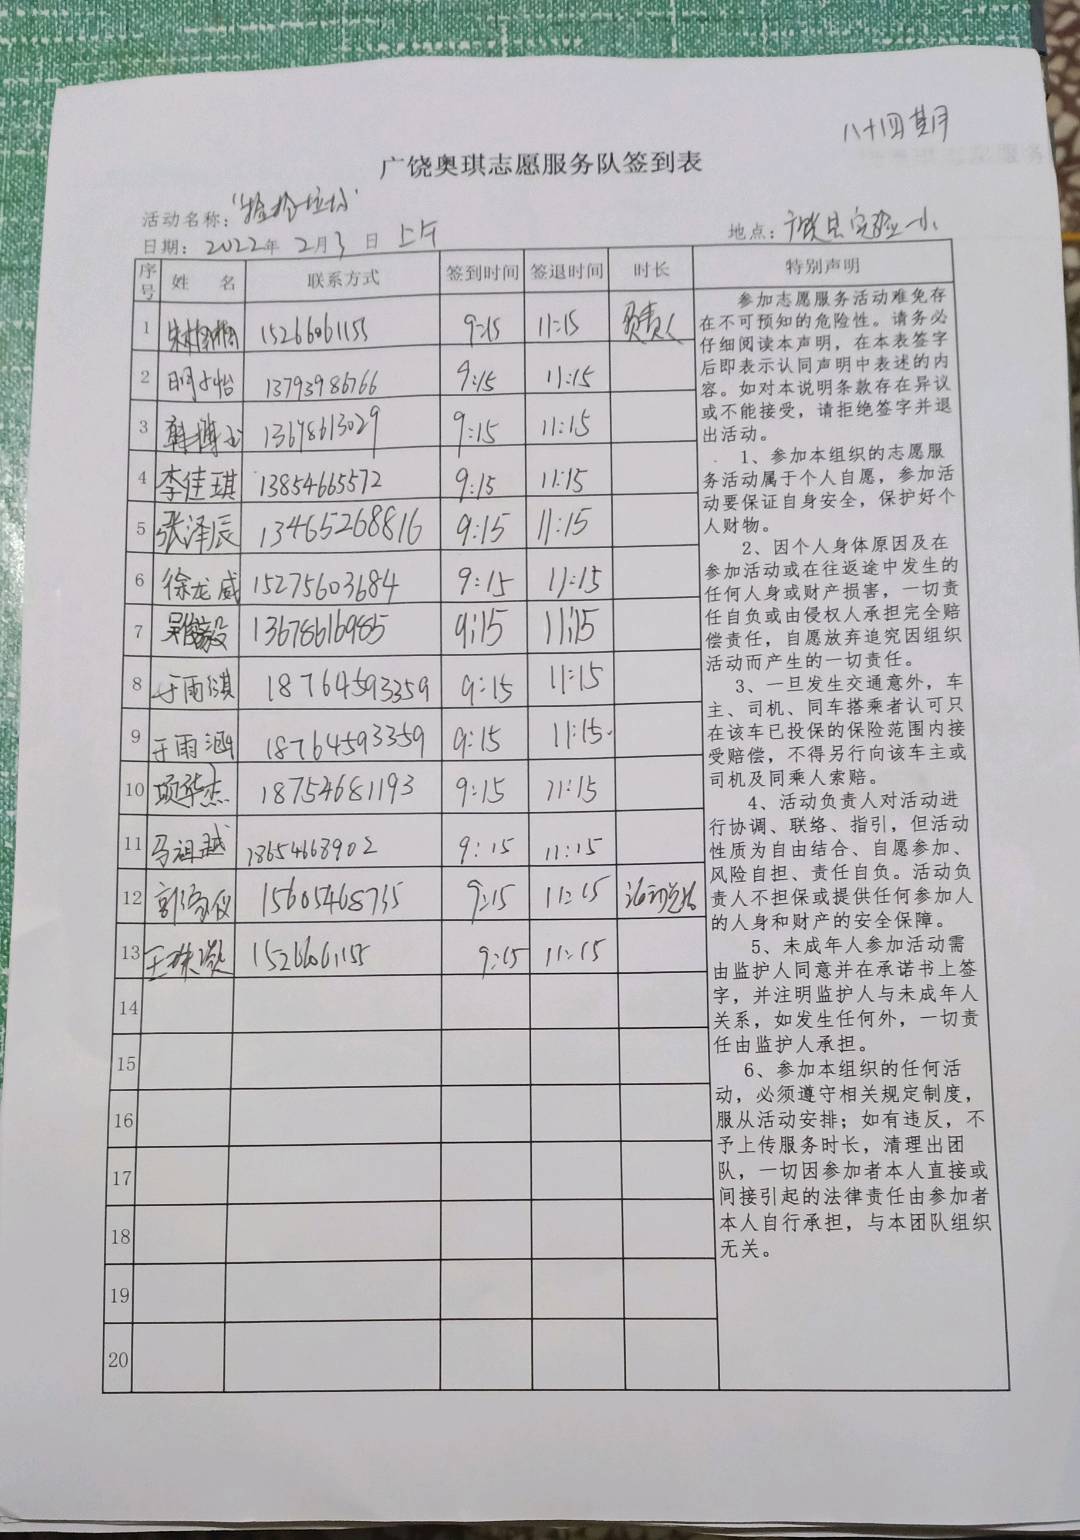 八十四期
广饶奥琪志愿服务队签到表
活动名称：“捡拾垃圾”
日期：2022年2月3日上午 地点：广饶县实验一小
序号 姓名 联系方式 签到时间 签退时间 时长 特别声明
1 15266061155 9:15 11:15 负责人
2 明占怡 13793986766 9:15 11:15
3 韩博文 13678613029 9:15 11:15
4 李佳琪 13854665572 9:15 11:15
5 张泽辰 13465268816 9:15 11:15
6 徐龙威 15275603684 9:15 11:15
7 吴俊毅 13678616985 9:15 11:15
8 于雨淇 18764593359 9:15 11:15
9 于雨涵 18764593359 9:15 11:15
10 项华杰 18754681193 9:15 11:15
11 马祖越 18654668902 9:15 11:15
12 15605468735 9:15 11:15 活动总结
13 15266061155 9:15 11:15
14
15
16
17
18
19
20
参加志愿服务活动难免存
在不可预知的危险性。请务必
仔细阅读本声明，在本表签字
后即表示认同声明中表述的内
容。如对本说明条款存在异议
或不能接受，请拒绝签字并退
出活动。
1、参加本组织的志愿服
务活动属于个人自愿，参加活
动要保证自身安全，保护好个
人财物。
2、因个人身体原因及在
参加活动或在往返途中发生的
任何人身或财产损害，一切责
任自负或由侵权人承担完全赔
偿责任，自愿放弃追究因组织
活动而产生的一切责任。
3、一旦发生交通意外，车
主、司机、同车搭乘者认可只
在该车已投保的保险范围内接
受赔偿，不得另行向该车主或
司机及同乘人索赔。
4、活动负责人对活动进
行协调、联络、指引，但活动
性质为自由结合、自愿参加、
风险自担、责任自负。活动负
责人不担保或提供任何参加人
的人身和财产的安全保障。
5、未成年人参加活动需
由监护人同意并在承诺书上签
字，并注明监护人与未成年人
关系，如发生任何外，一切责
任由监护人承担。
6、参加本组织的任何活
动，必须遵守相关规定制度，
服从活动安排；如有违反，不
予上传服务时长，清理出团
队，一切因参加者本人直接或
间接引起的法律责任由参加者
本人自行承担，与本团队组织
无关。